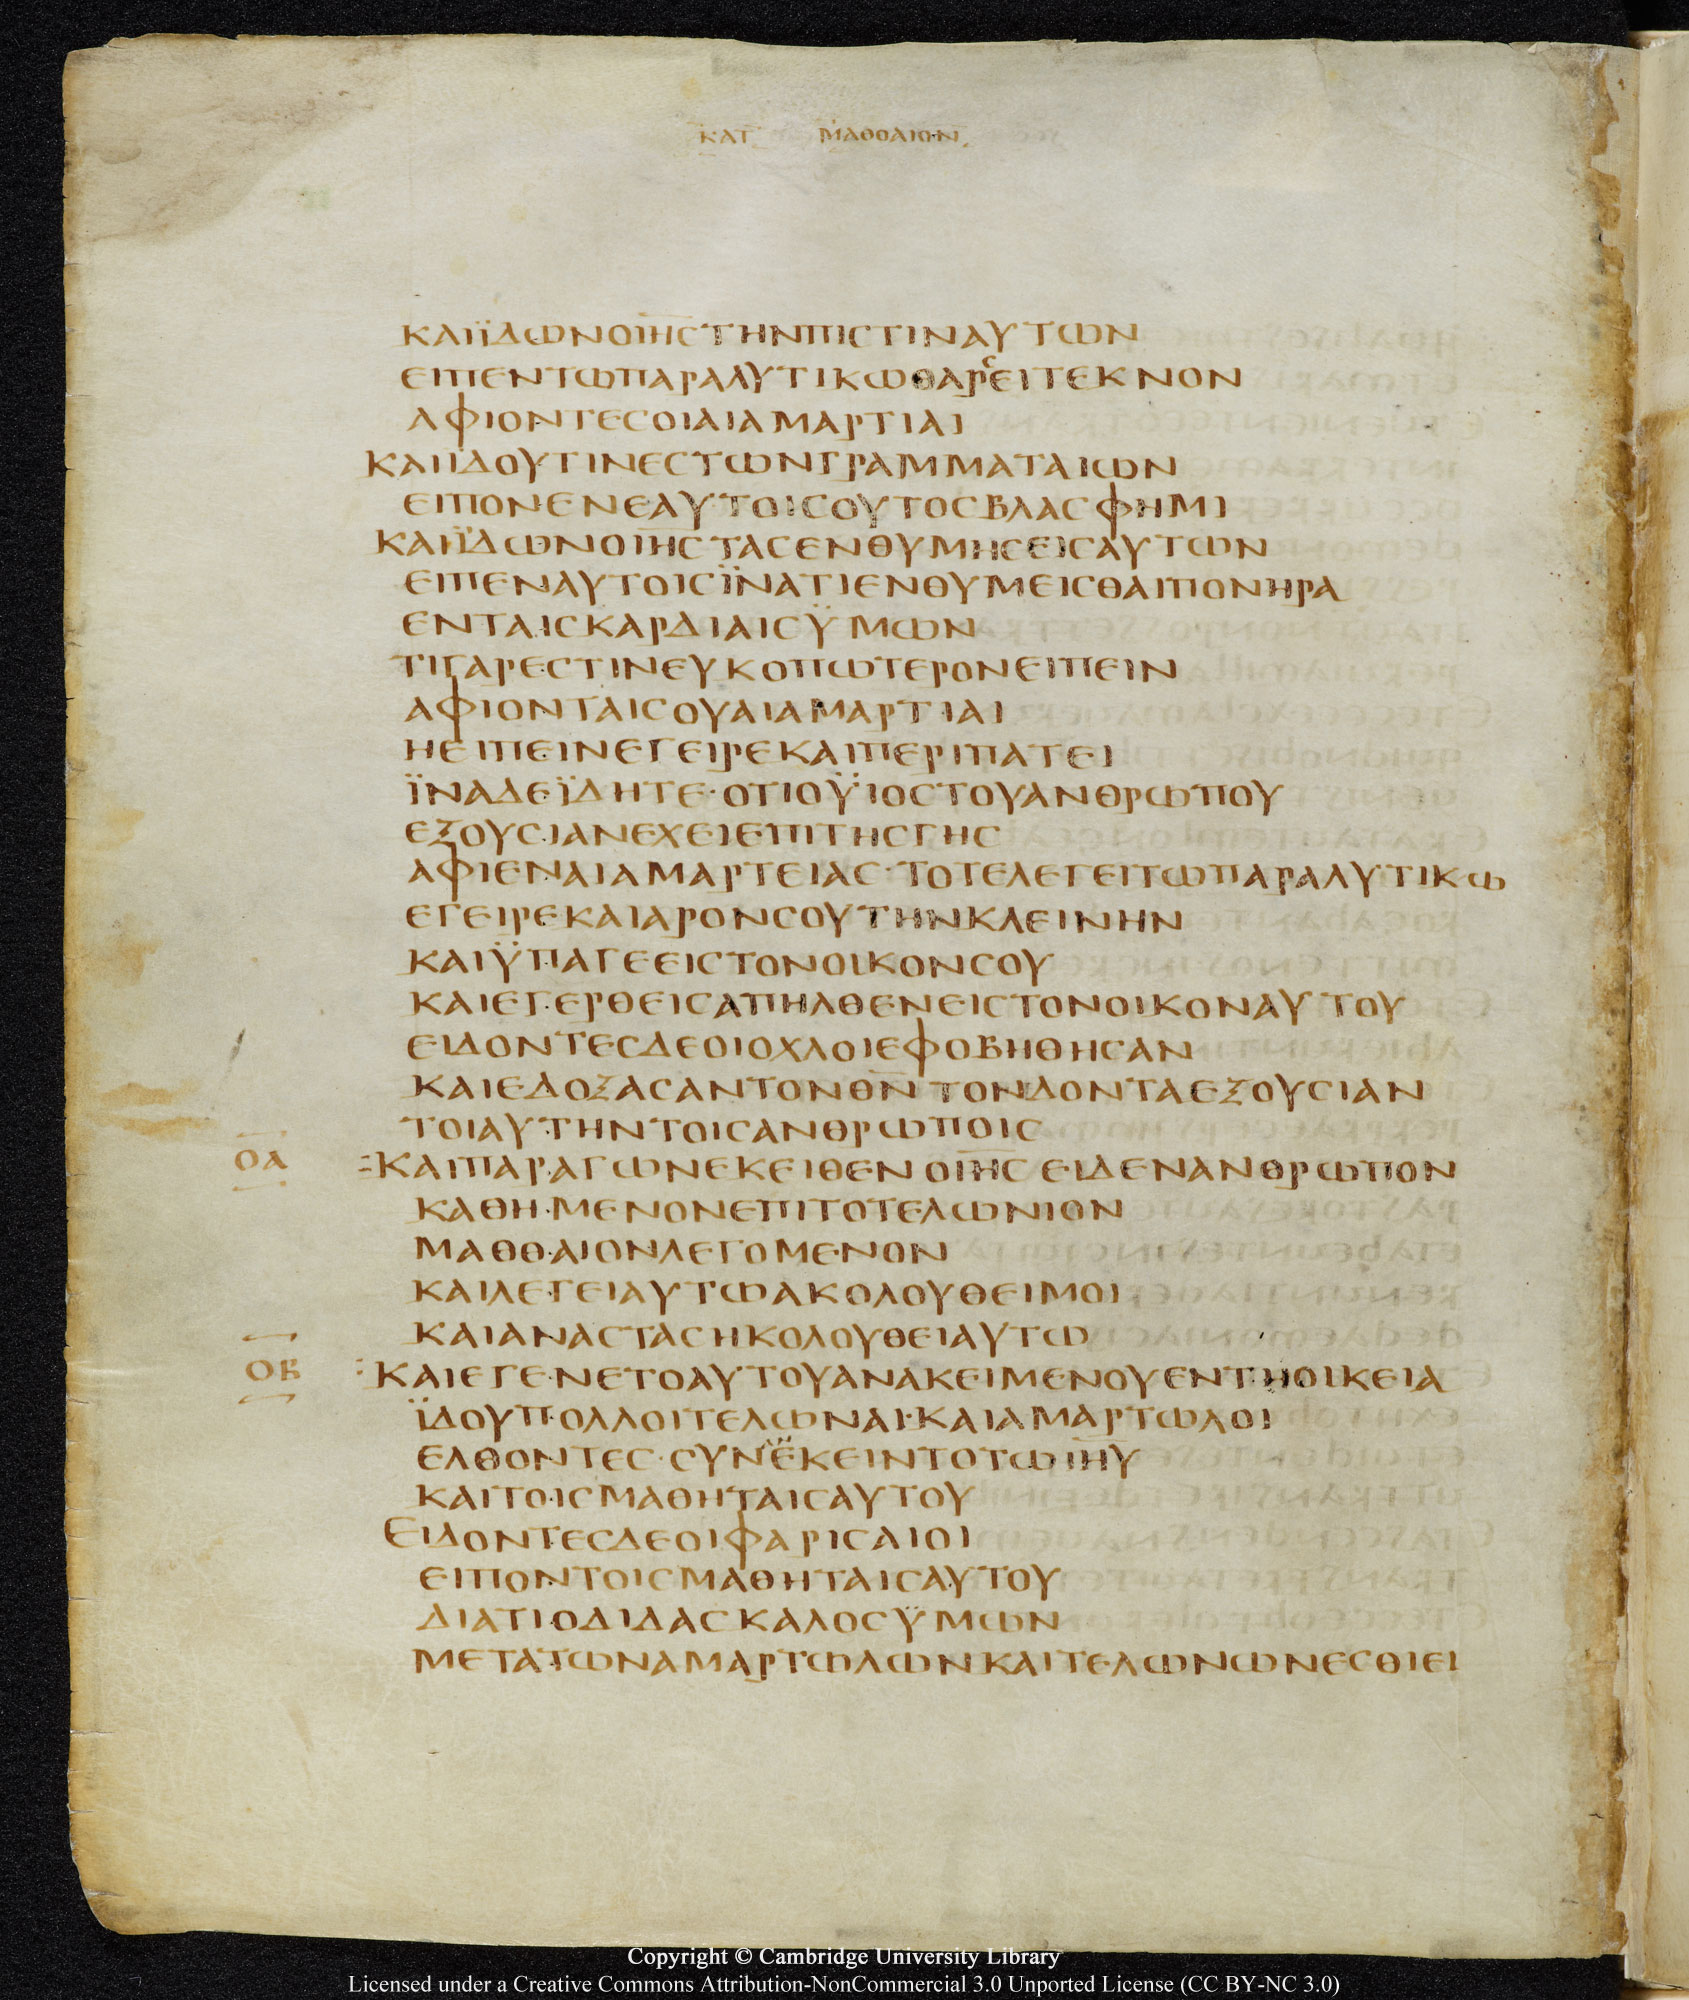 ΚΑΤ ΜΑΘΘΑΙΟΝ
ΚΑΙΪΔΩΝΟΙΗΣΤΗΝΠΙΣΤΙΝΑΥΤΩΝ
ΕΙΠΕΝΤΩΠΑΡΑΛΥΤΙΚΩΘΑΡΣΕΙΤΕΚΝΟΝ
ΑΦΙΟΝΤΕΣΟΙΑΙΑΜΑΡΤΙΑΙ
ΚΑΙΙΔΟΥΤΙΝΕΣΤΩΝΓΡΑΜΜΑΤΑΙΩΝ
ΕΙΠΟΝΕΝΕΑΥΤΟΙΣΟΥΤΟΣΒΛΑΣΦΗΜΙ
ΚΑΙΪΔΩΝΟΙΗΣΤΑΣΕΝΘΥΜΗΣΕΙΣΑΥΤΩΝ
ΕΙΠΕΝΑΥΤΟΙΣΪΝΑΤΙΕΝΘΥΜΕΙΣΘΑΙΠΟΝΗΡΑ
ΕΝΤΑΙΣΚΑΡΔΙΑΙΣΫΜΩΝ
ΤΙΓΑΡΕΣΤΙΝΕΥΚΟΠΩΤΕΡΟΝΕΙΠΕΙΝ
ΑΦΙΟΝΤΑΙΣΟΥΑΙΑΜΑΡΤΙΑΙ
ΗΕΙΠΕΙΝΕΓΕΙΡΕΚΑΙΠΕΡΙΠΑΤΕΙ
ΪΝΑΔΕΪΔΗΤΕ·ΟΤΙΟΫΙΟΣΤΟΥΑΝΘΡΩΠΟΥ
ΕΞΟΥΣΙΑΝΕΧΕΙΕΠΙΤΗΣΓΗΣ
ΑΦΙΕΝΑΙΑΜΑΡΤΕΙΑΣ·ΤΟΤΕΛΕΓΕΙΤΩΠΑΡΑΛΥΤΙΚΩ
ΕΓΕΙΡΕΚΑΙΑΡΟΝΣΟΥΤΗΝΚΛΕΙΝΗΝ
ΚΑΙΫΠΑΓΕΕΙΣΤΟΝΟΙΚΟΝΣΟΥ
ΚΑΙΕΓΕΡΘΕΙΣΑΠΗΛΘΕΝΕΙΣΤΟΝΟΙΚΟΝΑΥΤΟΥ
ΕΙΔΟΝΤΕΣΔΕΟΙΟΧΛΟΙΕΦΟΒΗΘΗΣΑΝ
ΚΑΙΕΔΟΞΑΣΑΝΤΟΝΘΝ ΤΟΝΔΟΝΤΑΕΞΟΥΣΙΑΝ
ΤΟΙΑΥΤΗΝΤΟΙΣΑΝΘΡΩΠΟΙΣ
ΟΑ ΚΑΙΠΑΡΑΓΩΝΕΚΕΙΘΕΝΟΙΗΣ ΕΙΔΕΝΑΝΘΡΩΠΟΝ
ΚΑΘΗΜΕΝΟΝΕΠΙΤΟΤΕΛΩΝΙΟΝ
ΜΑΘΘΑΙΟΝΛΕΓΟΜΕΝΟΝ
ΚΑΙΛΕΓΕΙΑΥΤΩΑΚΟΛΟΥΘΕΙΜΟΙ
ΚΑΙΑΝΑΣΤΑΣΗΚΟΛΟΥΘΕΙΑΥΤΩ
ΟΒ ΚΑΙΕΓΕΝΕΤΟΑΥΤΟΥΑΝΑΚΕΙΜΕΝΟΥΕΝΤΗΟΙΚΕΙΑ
ΪΔΟΥΠΟΛΛΟΙΤΕΛΩΝΑΙ·ΚΑΙΑΜΑΡΤΩΛΟΙ
ΕΛΘΟΝΤΕΣ·ΣΥΝΕΚΕΙΝΤΟΤΩΙΗΥ
ΚΑΙΤΟΙΣΜΑΘΗΤΑΙΣΑΥΤΟΥ
ΕΙΔΟΝΤΕΣΔΕΟΙΦΑΡΙΣΑΙΟΙ
ΕΙΠΟΝΤΟΙΣΜΑΘΗΤΑΙΣΑΥΤΟΥ
ΔΙΑΤΙΟΔΙΔΑΣΚΑΛΟΣΫΜΩΝ
ΜΕΤΑΤΩΝΑΜΑΡΤΩΛΩΝΚΑΙΤΕΛΩΝΩΝΕΣΘΙΕΙ
Copyright © Cambridge University Library
Licensed under a Creative Commons Attribution-NonCommercial 3.0 Unported License (CC BY-NC 3.0)